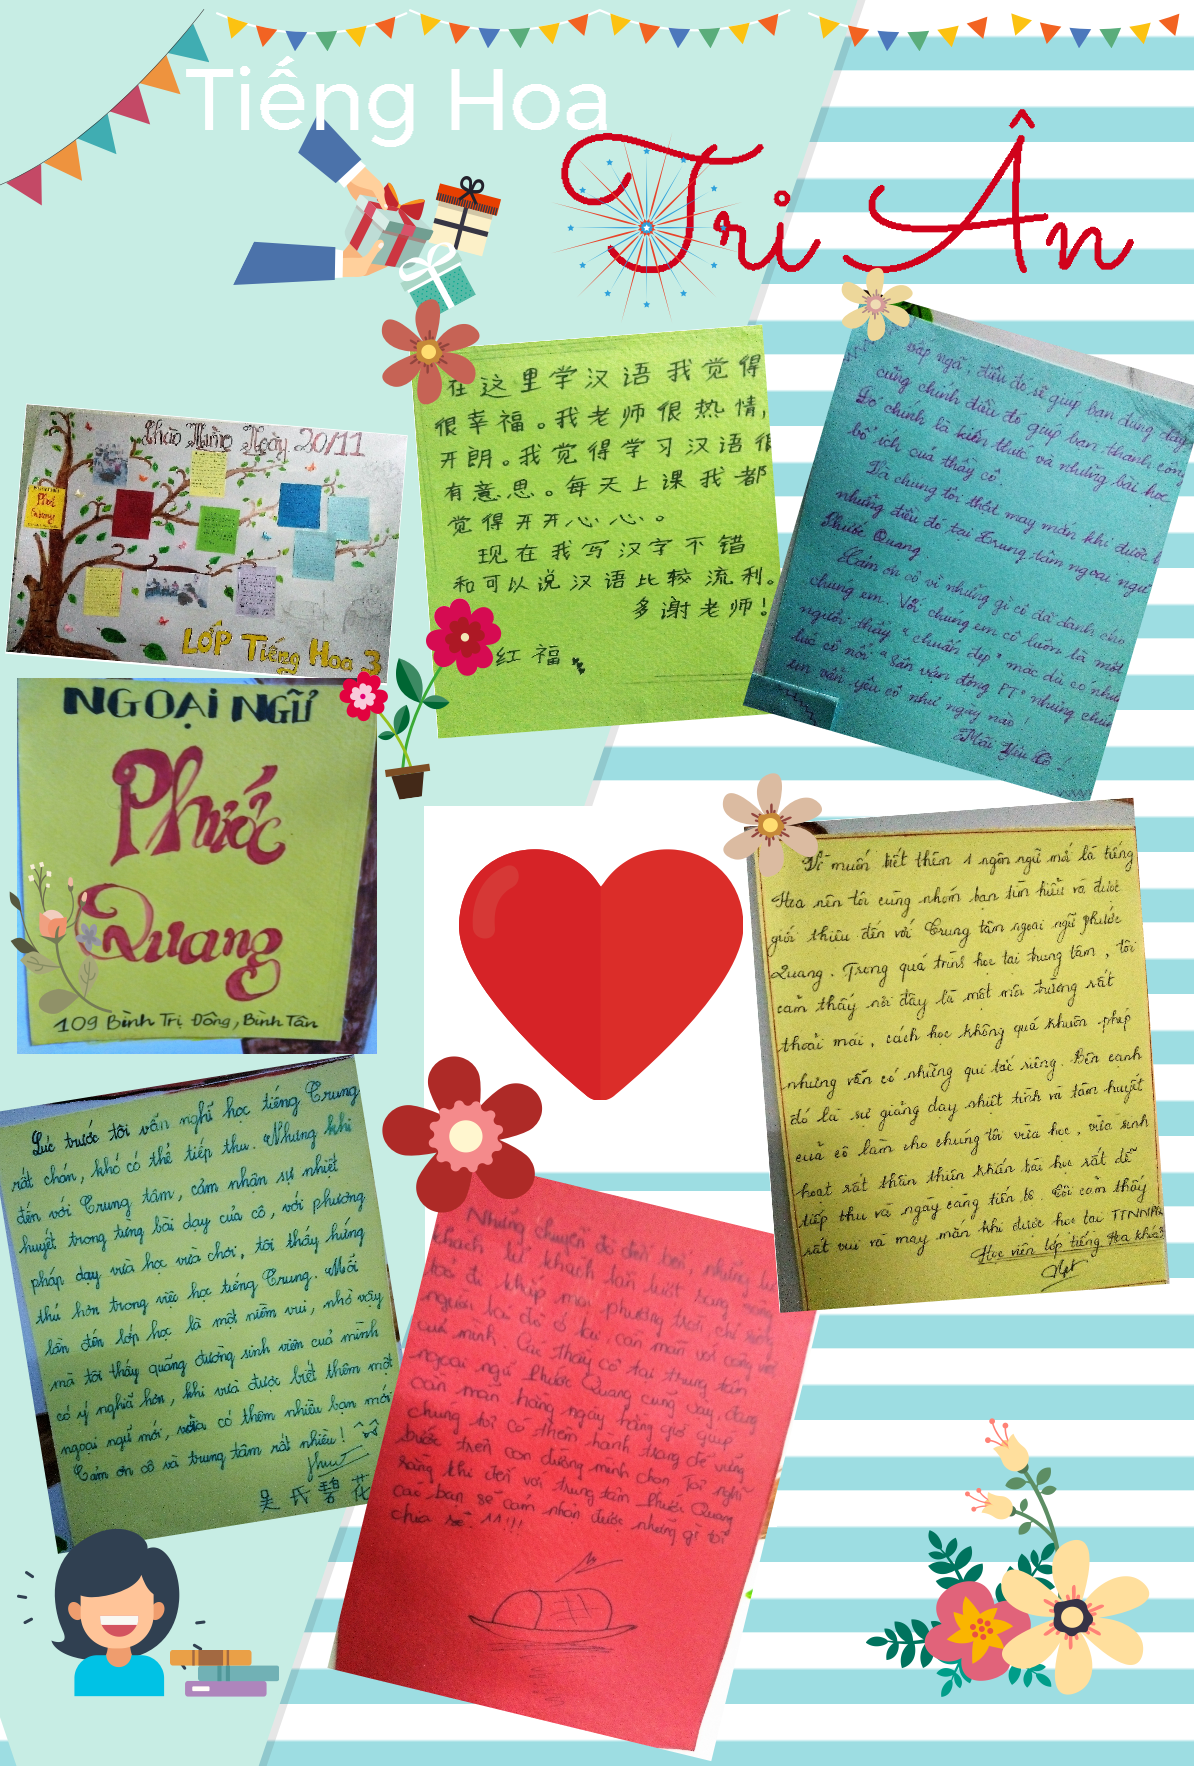 Tiếng Hoa
Tri Ân
Chào Mừng Ngày 20/11
LỚP Tiếng Hoa 3
在这里学汉语我觉得
很幸福。我老师很热情,
开朗。我觉得学习汉语很
有意思。每天上课我都
觉得开开心心。
现在我写汉字不错
和可以说汉语比较流利。
多谢老师!
红福
vấp ngã, điều đó sẽ giúp bạn đứng dậy
cũng chính điều đó giúp bạn thành công
Đó chính là kiến thức và những bài học
bổ ích của thầy cô.
Và chúng tôi thật may mắn khi được
những điều đó tại Trung tâm ngoại ngữ
Phước Quang
Cảm ơn cô vì những gì cô đã dành cho
chúng em. Với chúng em cô luôn là một
người thầy "chuẩn đẹp" mặc dù có nhiều
lúc cô nói "sân vận động PT" nhưng chúng
em vẫn yêu cô như ngày nào!
Mãi Yêu Cô!
NGOẠI NGỮ
Phước
Quang
109 Bình Trị Đông, Bình Tân
Vì muốn biết thêm 1 ngôn ngữ mới là tiếng
Hoa nên tôi cùng nhóm bạn tìm hiểu và được
giới thiệu đến với Trung tâm ngoại ngữ Phước
Quang. Trong quá trình học tại trung tâm, tôi
cảm thấy nơi đây là một môi trường rất
thoải mái, cách học không quá khuôn phép
nhưng vẫn có những qui tắc riêng. Bên cạnh
đó là sự giảng dạy nhiệt tình và tâm huyết
của cô làm cho chúng tôi vừa học, vừa sinh
hoạt rất thân thiện khiến bài học rất dễ
tiếp thu và ngày càng tiến bộ. Tôi cảm thấy
rất vui và may mắn khi được học tại TTNNPQ
Học viên lớp tiếng Hoa khóa 3
Lúc trước tôi vẫn nghĩ học tiếng Trung
rất chán, khó có thể tiếp thu. Nhưng khi
đến với Trung tâm, cảm nhận sự nhiệt
huyết trong từng bài dạy của cô, với phương
pháp dạy vừa học vừa chơi, tôi thấy hứng
thú hơn trong việc học tiếng Trung. Mỗi
lần đến lớp học là một niềm vui, nhờ vậy
mà tôi thấy quãng đường sinh viên của mình
có ý nghĩa hơn, khi vừa được biết thêm một
ngoại ngữ mới, vừa có thêm nhiều bạn mới
Cảm ơn cô và trung tâm rất nhiều!
吴氏碧花
Những chuyến đò đến bến, những lư
khách từ khách lần lượt sang sông
toả đi khắp mọi phương trời, chỉ riêng
người lái đò ở lại cần mẫn với công việc
của mình. Các thầy cô tại trung tâm
ngoại ngữ Phước Quang cũng vậy, đang
cần mẫn hằng ngày hằng giờ giúp
chúng tôi có thêm hành trang để vững
bước trên con đường mình chọn. Tôi nghĩ
rằng khi đến với trung tâm Phước Quang
các bạn sẽ cảm nhận được những gì tôi
chia sẻ. ^^!!!